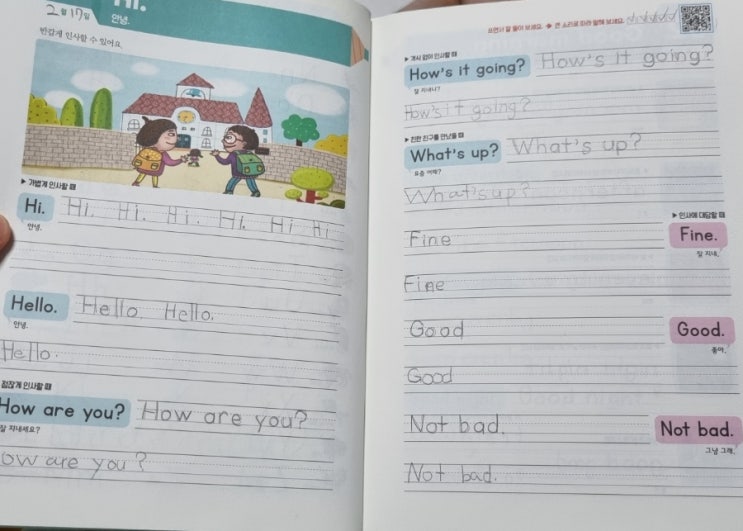 Hi.
2월 17일
안녕.
반갑게 인사할 수 있어요.
▶ 가볍게 인사할 때
Hi. Hi. Hi. Hi. Hi. Hi Hi
안녕.
Hello. Hello. Hello.
안녕.
Hello.
점잖게 인사할 때
How are you? How are you?
잘 지내세요?
ow are you?
쓰면서 잘 들어 보세요. → 큰 소리로 따라 말해 보세요.
▶ 격식 없이 인사할 때
How's it going? How's it going?
잘 지내니?
How's it going?
▶ 친한 친구를 만났을 때
What's up? What's up?
요즘 어때?
What's up?
▶ 인사에 대답할 때
Fine Fine.
잘 지내.
Fine
Good Good.
좋아.
Good
Not bad. Not bad.
그냥 그래.
Not bad.